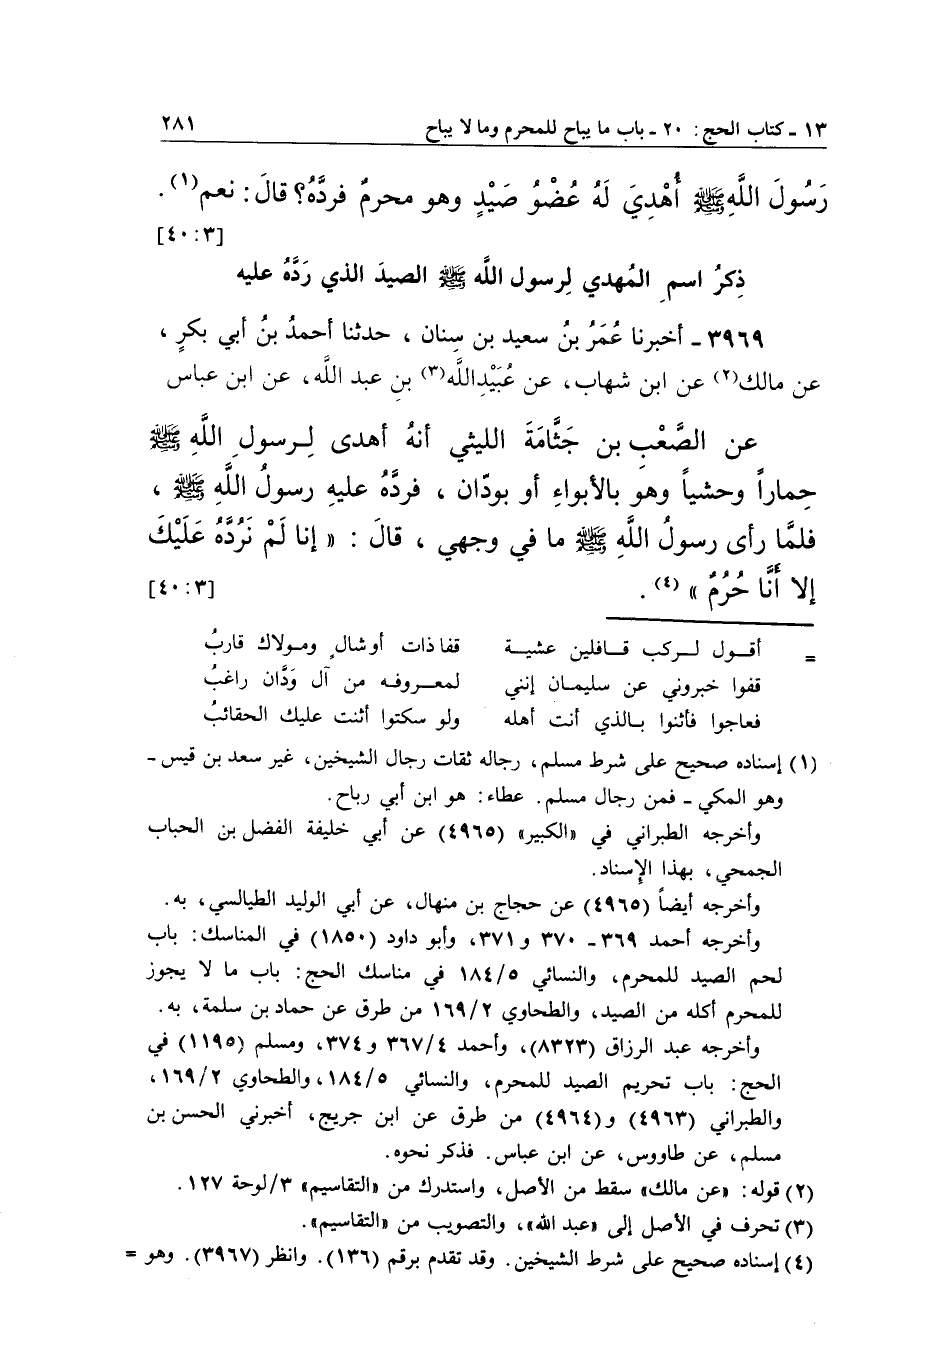 ١٣ ـ كتاب الحج: ٢٠ ـ باب ما يباح للمحرم وما لا يباح ٢٨١
رَسُولَ اللَّهِ ﷺ أُهْدِيَ لَهُ عُضْوُ صَيْدٍ وهو محرمٌ فردَّهُ؟ قالَ: نعم(١).
[٤٠:٣]
ذِكرُ اسمِ المُهدي لِرسول اللَّه ﷺ الصيدَ الذي رَدَّهُ عليه
٣٩٦٩ ـ أخبرنا عُمَرُ بنُ سعيد بن سِنان ، حدثنا أحمدُ بنُ أبي بكرٍ ،
عن مالك(٢) عن ابن شهاب، عن عُبَيْدِاللَّه(٣) بن عبد اللَّه، عن ابن عباس
عن الصَّعْبِ بن جَثَّامَةَ الليثي أنهُ أهدى لِرسولِ اللَّهِ ﷺ
حِماراً وحشياً وهو بالأبواءِ أو بودّان ، فردَّهُ عليهِ رسولُ اللَّهِ ﷺ ،
فلمَّا رأى رسولُ اللَّهِ ﷺ ما في وجهي ، قالَ : « إنا لَمْ نَرُدَّهُ عَلَيْكَ
إلا أَنَّا حُرُمٌ » (٤) . [٤٠:٣]
= أقول لركب قافلين عشية قفا ذات أوشالٍ ومولاك قاربُ
قفوا خبروني عن سليمان إنني لمعروفه من آل وَدَّان راغبُ
فعاجوا فأثنوا بالذي أنت أهله ولو سكتوا أثنت عليك الحقائبُ
(١) إسناده صحيح على شرط مسلم، رجاله ثقات رجال الشيخين، غير سعد بن قيس ـ
وهو المكي ـ فمن رجال مسلم. عطاء: هو ابن أبي رباح.
وأخرجه الطبراني في «الكبير» (٤٩٦٥) عن أبي خليفة الفضل بن الحباب
الجمحي، بهذا الإسناد.
وأخرجه أيضاً (٤٩٦٥) عن حجاج بن منهال، عن أبي الوليد الطيالسي، به.
وأخرجه أحمد ٣٦٩ـ ٣٧٠ و٣٧١، وأبو داود (١٨٥٠) في المناسك: باب
لحم الصيد للمحرم، والنسائي ١٨٤/٥ في مناسك الحج: باب ما لا يجوز
للمحرم أكله من الصيد، والطحاوي ١٦٩/٢ من طرق عن حماد بن سلمة، به.
وأخرجه عبد الرزاق (٨٣٢٣)، وأحمد ٣٦٧/٤ و٣٧٤، ومسلم (١١٩٥) في
الحج: باب تحريم الصيد للمحرم، والنسائي ١٨٤/٥، والطحاوي ١٦٩/٢،
والطبراني (٤٩٦٣) و(٤٩٦٤) من طرق عن ابن جريج، أخبرني الحسن بن
مسلم، عن طاووس، عن ابن عباس. فذكر نحوه.
(٢) قوله: «عن مالك» سقط من الأصل، واستدرك من «التقاسيم» ٣/لوحة ١٢٧.
(٣) تحرف في الأصل إلى «عبد الله»، والتصويب من «التقاسيم».
(٤) إسناده صحيح على شرط الشيخين. وقد تقدم برقم (١٣٦). وانظر (٣٩٦٧). وهو =